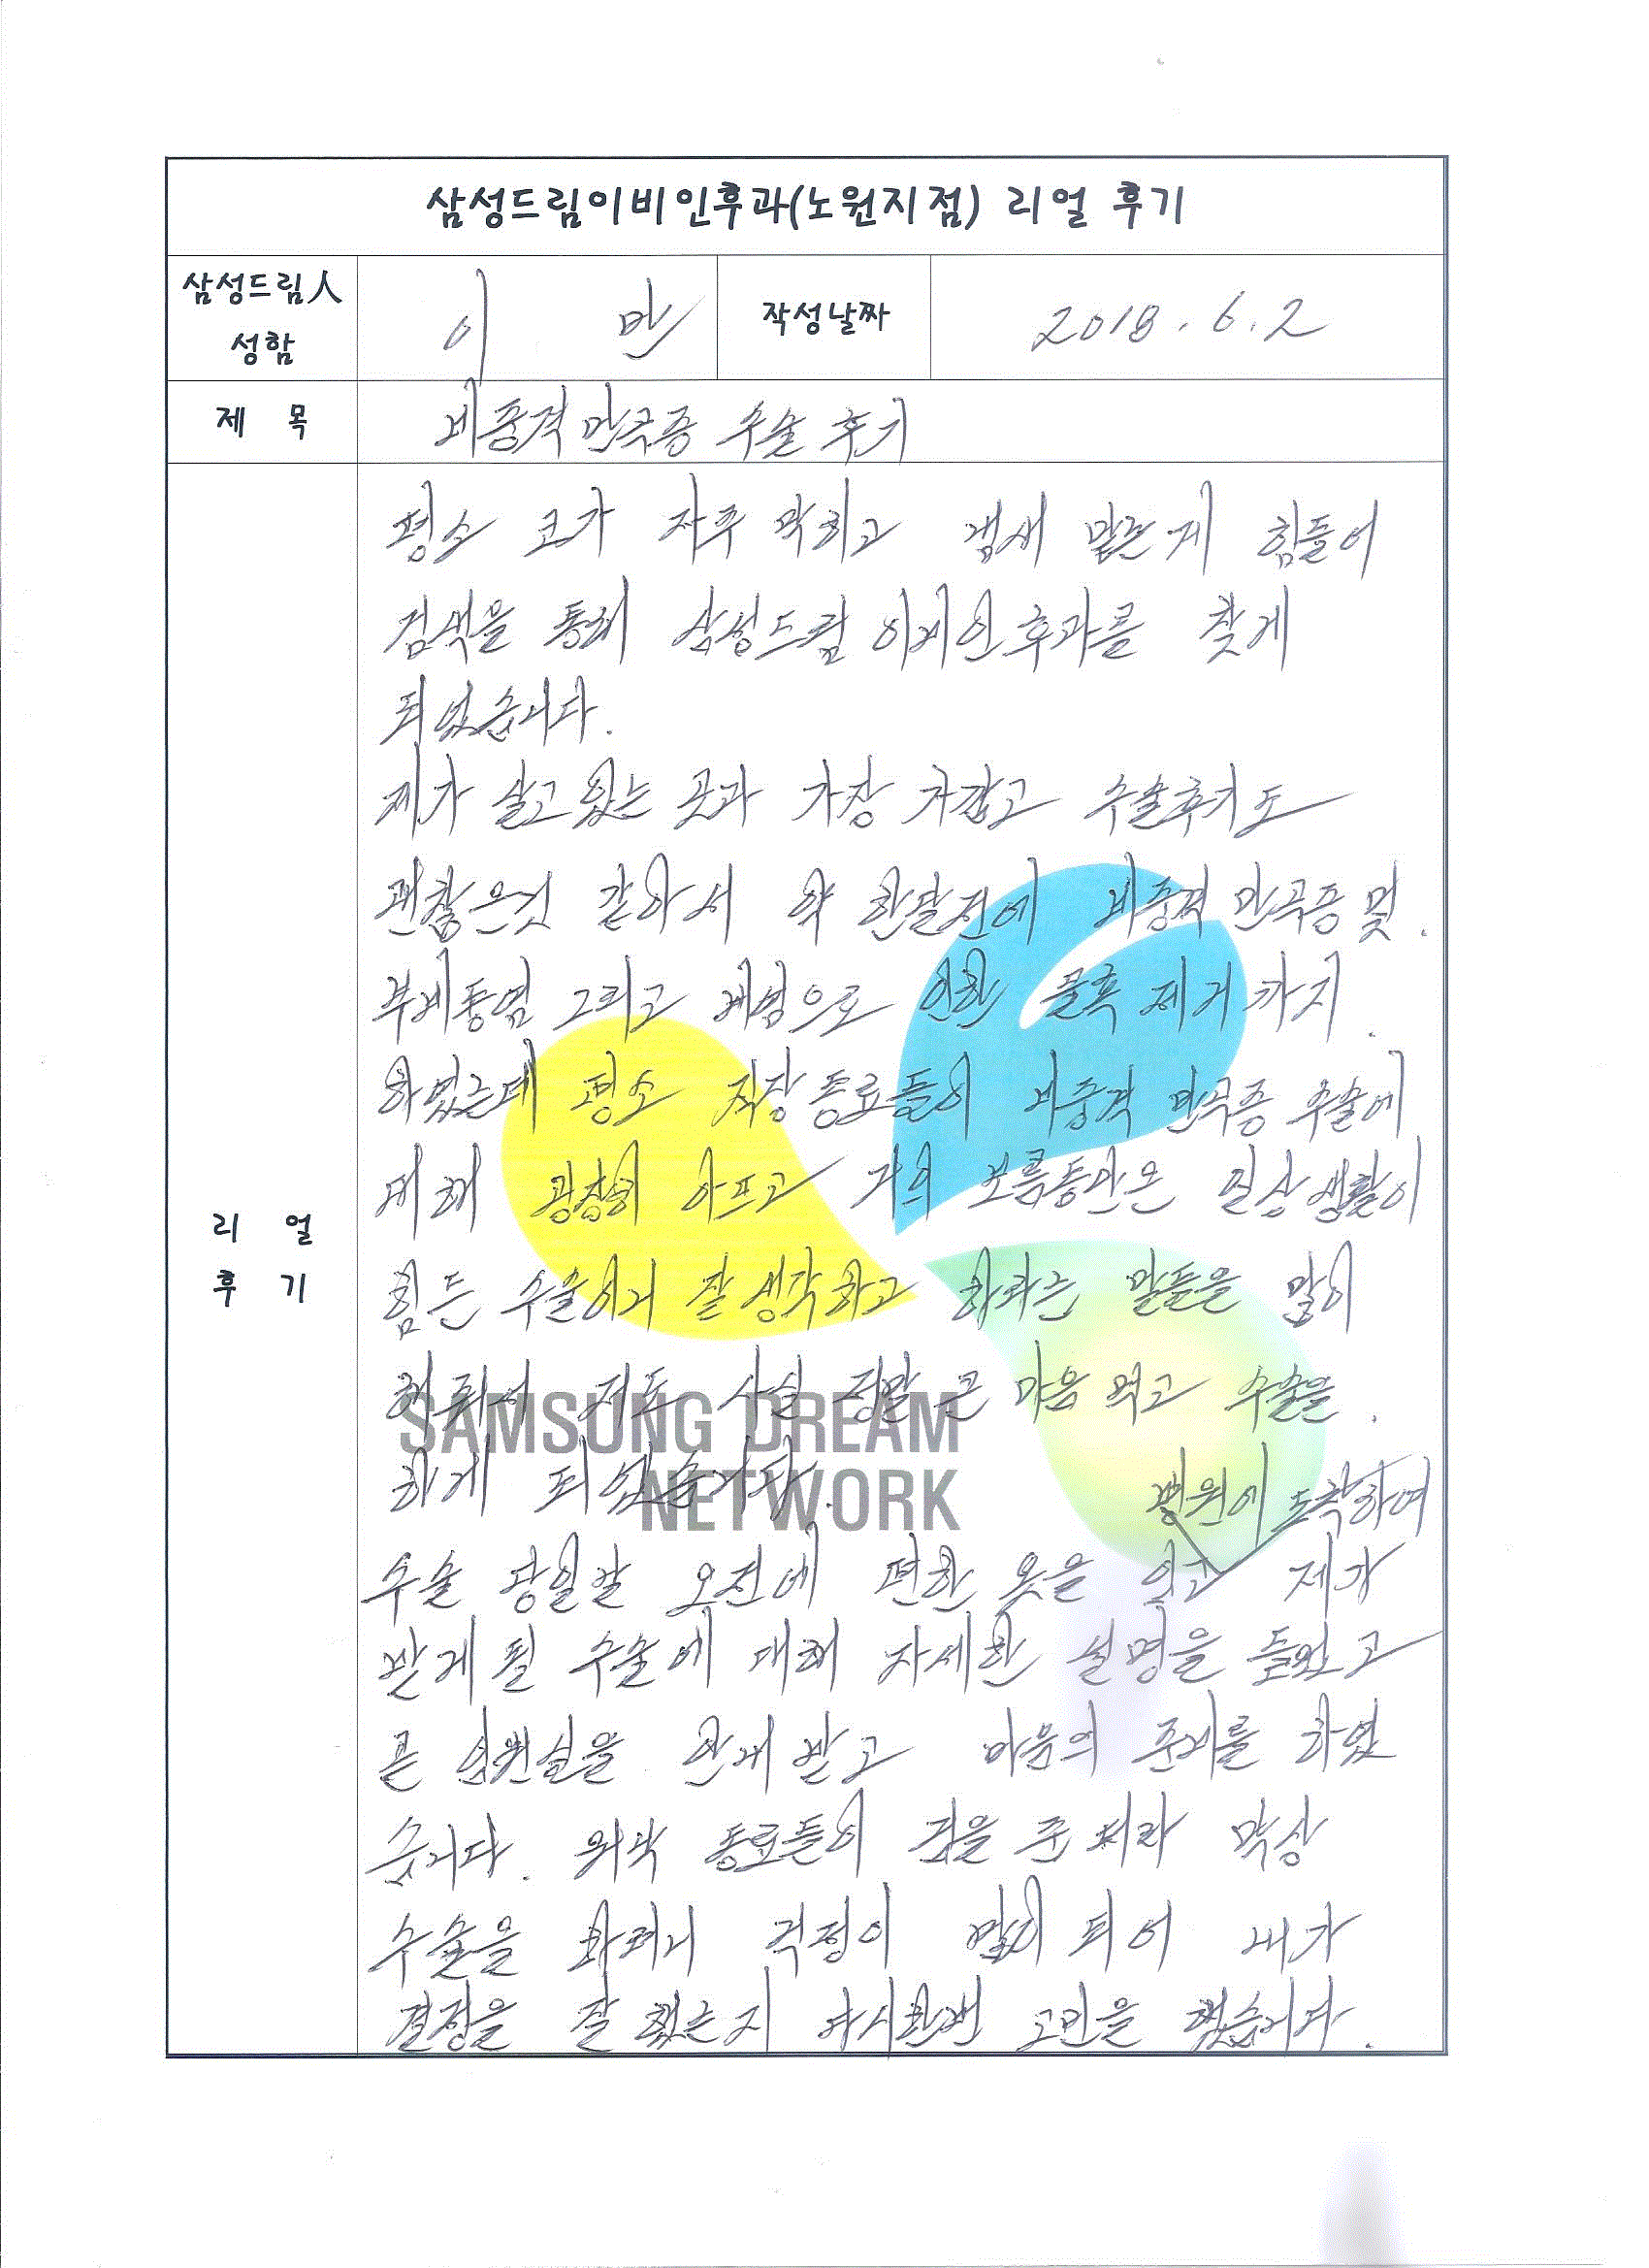 삼성드림이비인후과(노원지점) 리얼 후기
삼성드림人 성함
이 만
작성날짜
2018. 6. 2
제 목
비중격만곡증 수술 후기
리 얼 후 기
평소 코가 자주 막히고 냄새 맡는게 힘들어
검색을 통해 삼성드림 이비인후과를 찾게
되었습니다.
제가 살고 있는 곳과 가장 가깝고 수술후기도
괜찮은것 같아서 약 한달전에 비중격 만곡증 및
부비동염 그리고 비염으로 인한 물혹 제거까지
하였는데 평소 직장 동료들이 비중격 만곡증 수술에
대해 굉장히 아프고 거의 보름동안은 일상생활이
힘든 수술이니 잘 생각하고 하라는 말들을 많이
해줘서 저도 사실 정말 큰 마음 먹고 수술을
하게 되었습니다.
병원에 도착하여
수술 당일날 오전에 편한 옷을 입고 제가
받게 될 수술에 대해 자세한 설명을 들었고
큰 입원실을 안내 받고 마음의 준비를 하였
습니다. 워낙 동료들이 겁을 준지라 막상
수술을 하려니 걱정이 많이 되어 내가
결정을 잘 했는지 다시한번 고민을 했습니다.
SAMSUNG DREAM
NETWORK